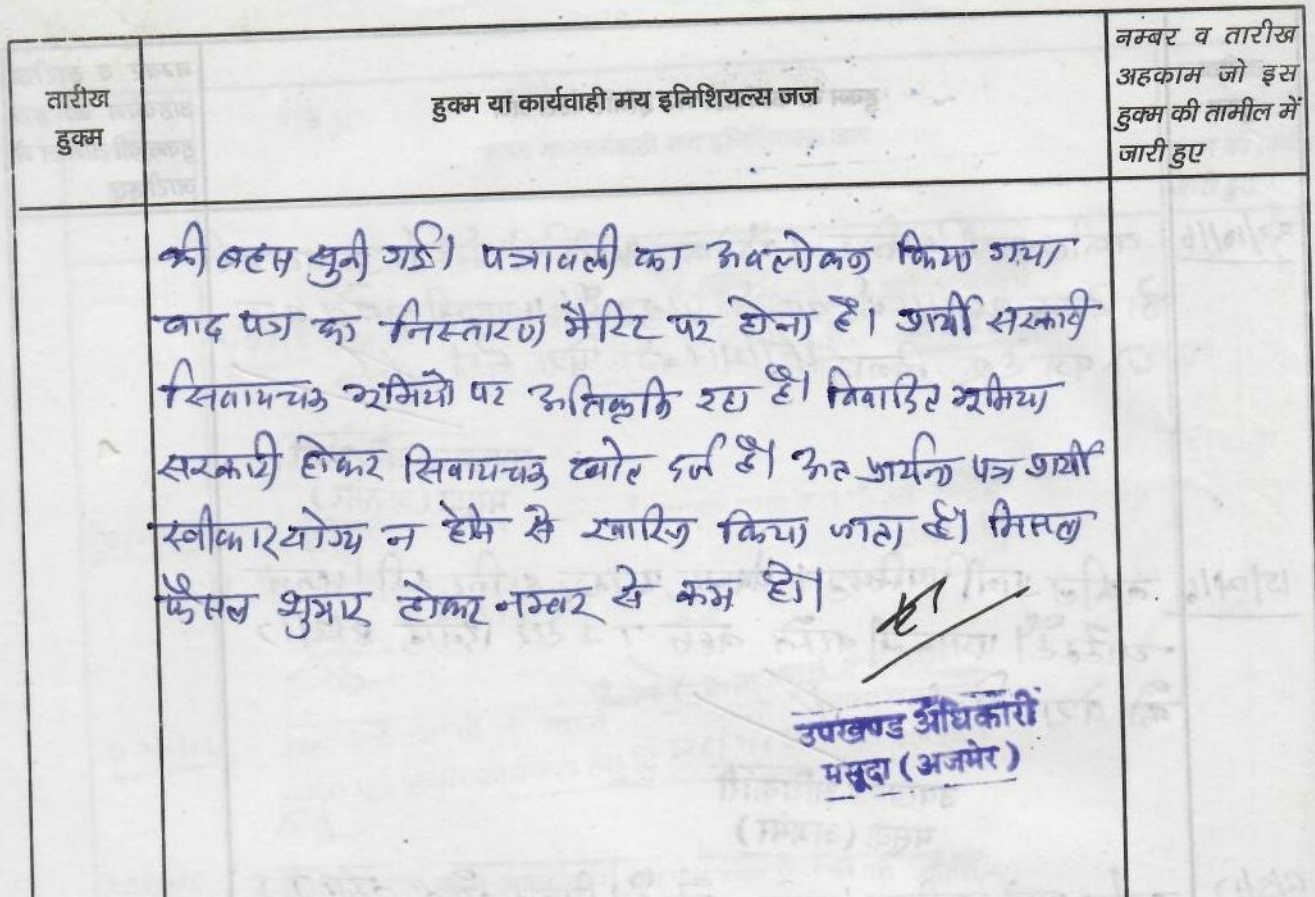 तारीख
हुक्म
हुक्म या कार्यवाही मय इनिशियल्स जज
नम्बर व तारीख
अहकाम जो इस
हुक्म की तामील में
जारी हुए
की बहस सुनी गई। पत्रावली का अवलोकन किया गया
वाद पत्र का निस्तारण मैरिट पर होना है। प्रार्थी सरकारी
सिवायचक भूमियों पर अतिक्रमि रहा है। विवादित भूमिया
सरकारी होकर सिवायचक दर्ज है। अत प्रार्थना पत्र प्रार्थी
स्वीकार योग्य न होने से खारिज किया जाता है। मिसल
फैसल शुमार होकर नम्बर से कम हो।
उपखण्ड अधिकारी
मसूदा (अजमेर)